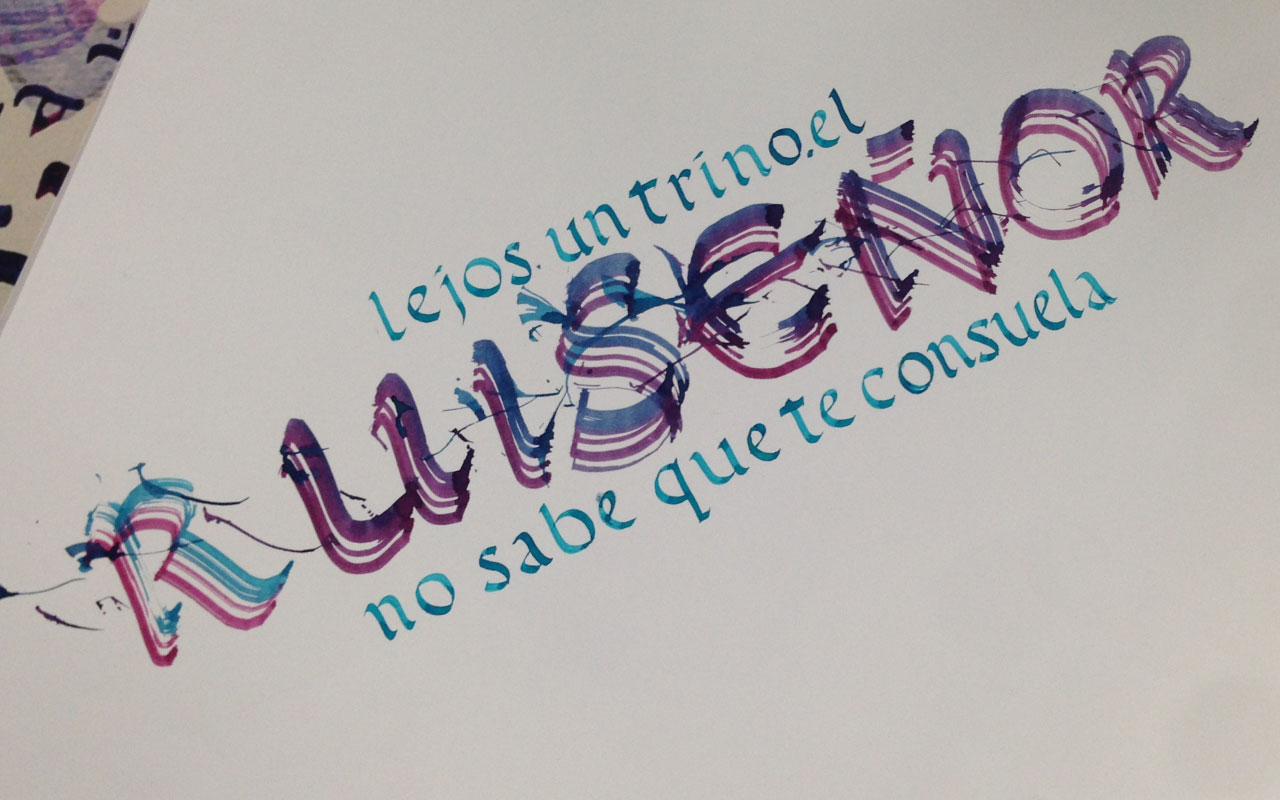 lejos un trino.el
RUISEÑOR
no sabe que te consuela